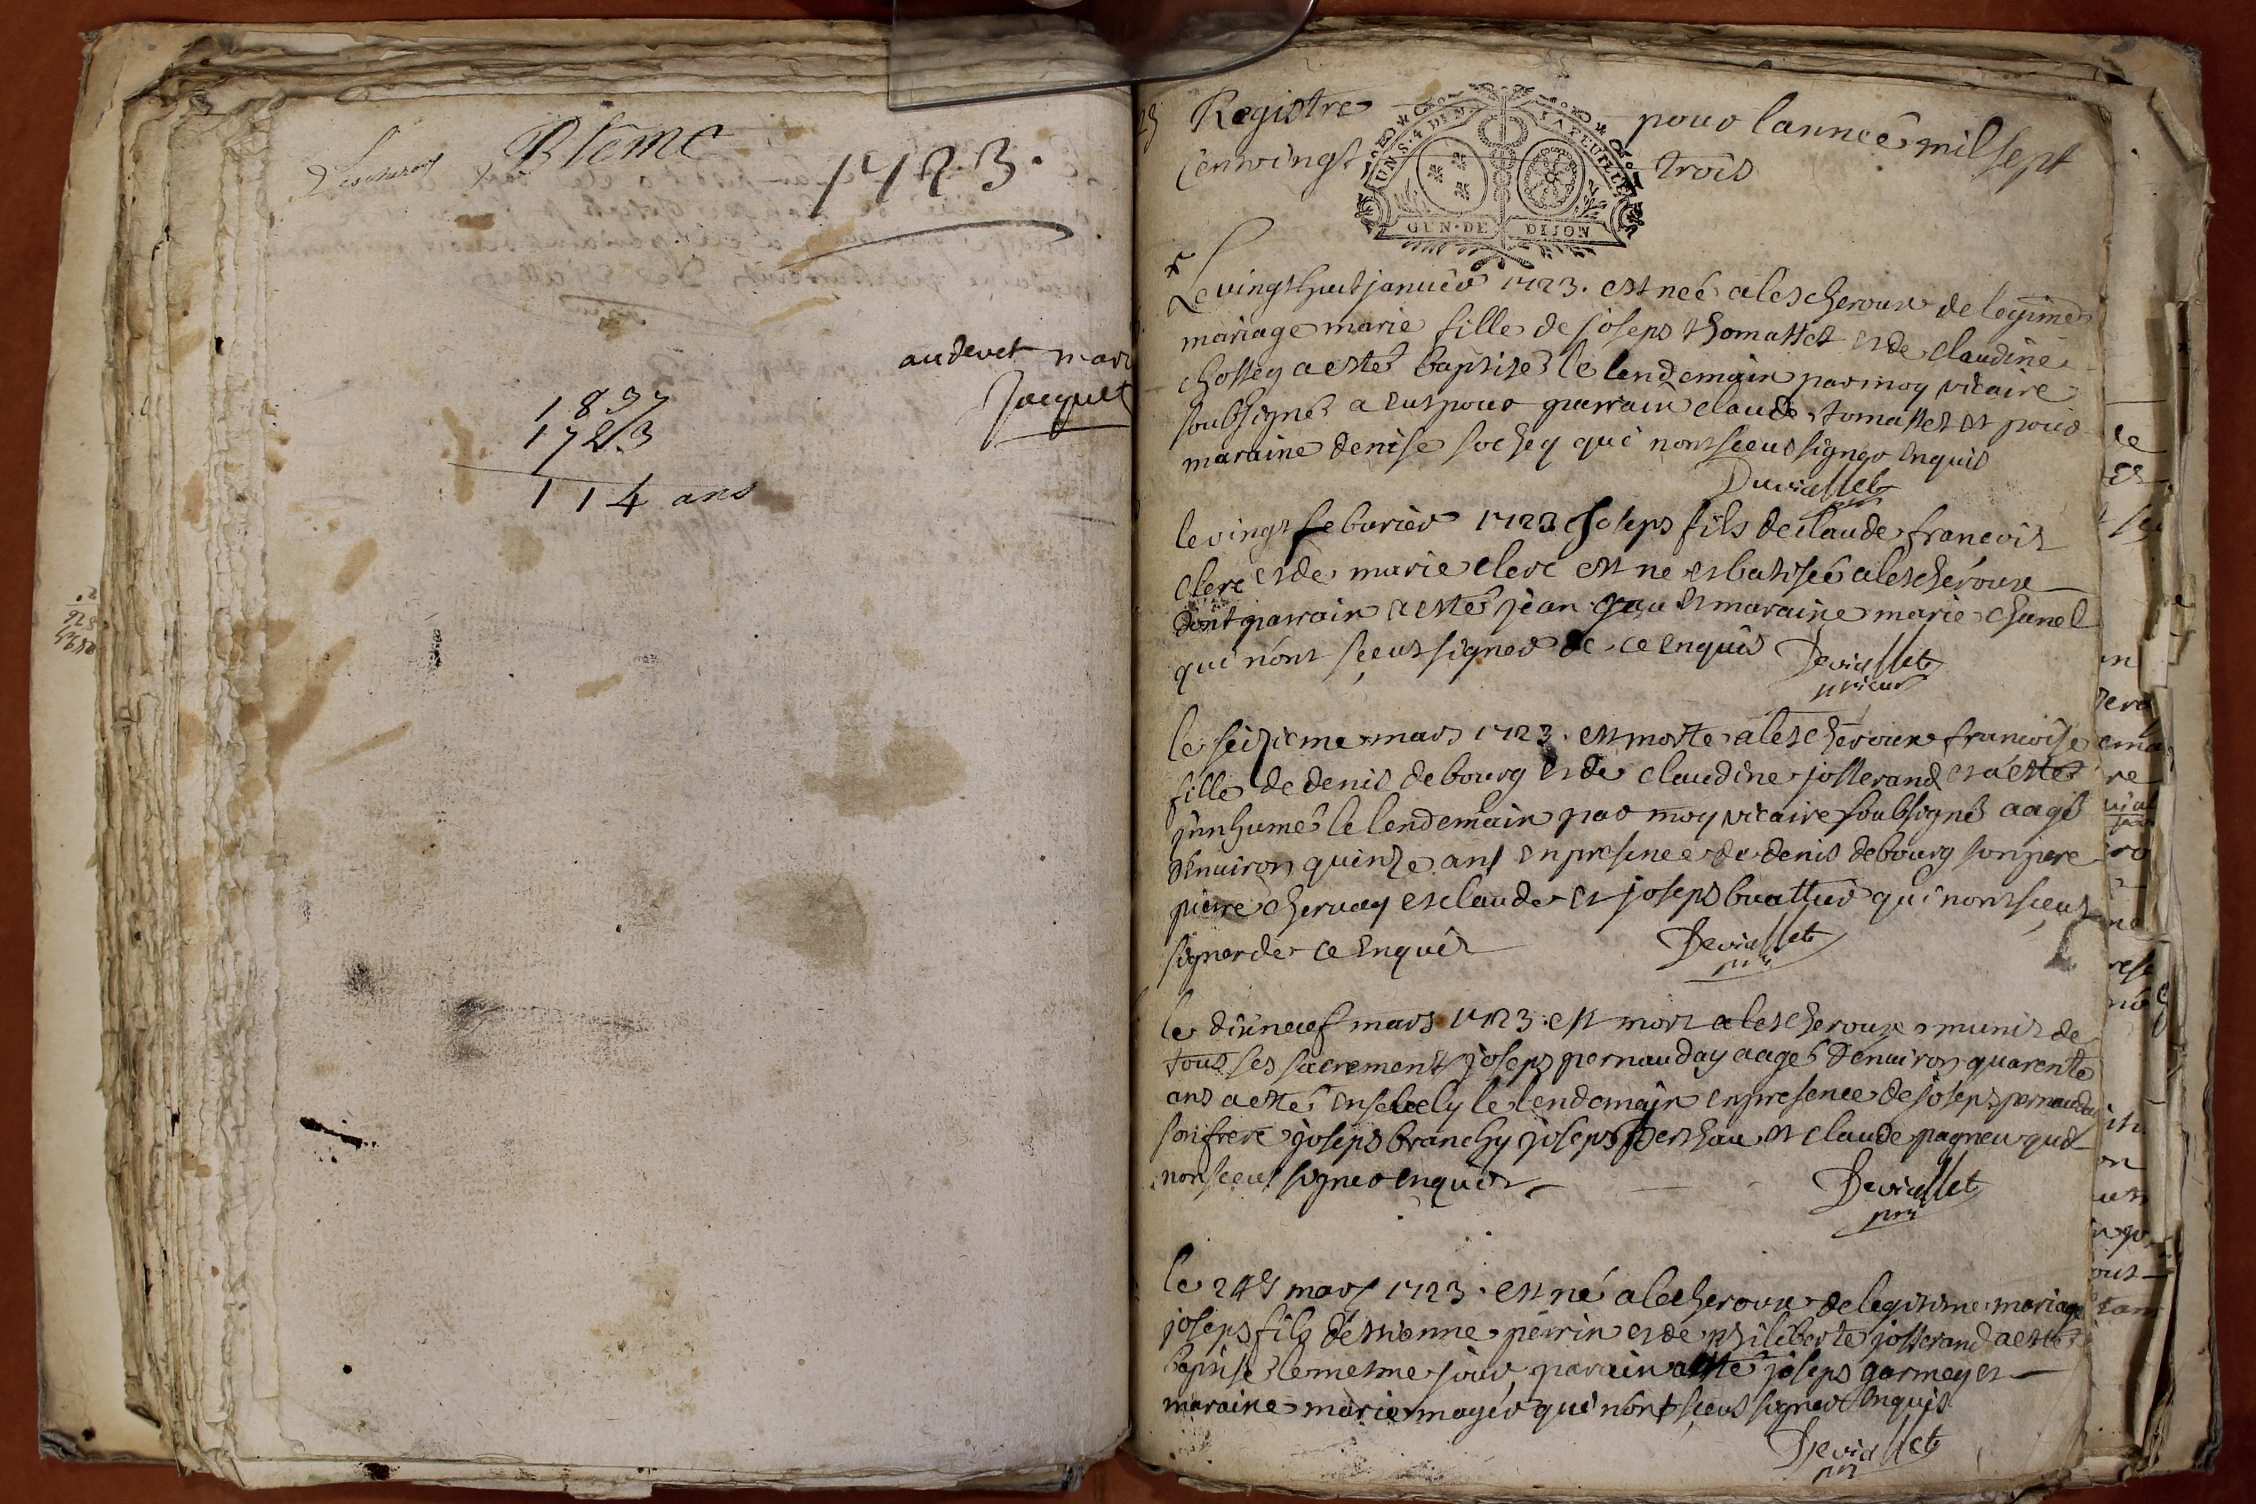 Btême
1723.
audevet mari
Jacquet
1837
1723
114 ans
Registre pour lanneé mil sept
cent vingt trois
UN S. 4 DEN. LA FEUILLE
GEN. DE DIJON
Le vingt huit janvier 1723. est neé a lescheroux de legitime
mariage marie fille de joseps thomasset et de claudine
chossey a esté baptiseé le lendemain par moy vicaire
soubsigné a eut pour parrain claude tomasset et pour
maraine denise sochey qui nont sceus signer enquis
Deviallet
le vingt febvrier 1723 joseps fils de claude francois
clerc et de marie clerc est ne et batiseé a lescheroux
dont parrain a esté jean et maraine marie chanel
qui nont sceut signer de ce enquis Deviallet
prieur
le seizieme mars 1723. est morte a lescheroux francoise
fille de denis debourg et de claudine josserand et a esté
jnnhumeé le lendemain par moy vicaire soubsigné aagé
denviron quinze ans en presence de denis debourg son pere
pierre chervay et claude et joseps buattier qui nont sceut
signer de ce enquis Deviallet
le dixneuf mars 1723 est mort a lescheroux munis de
tous ses sacrements joseps pernauday aagé denviron quarente
ans a esté ensevely le lendemain en presence de joseps pernauday
son frere joseps branchy joseps berthau et claude pagneu qui
nont sceut signer enquis
Deviallet
le 24e mars 1723. est né a lecheroux de legitime mariage
joseps fils détienne perrin et de philiberte josserand a esté
baptisé le mesme jour parain a esté joseps garmey et
maraine marie mayer qui nont sceus signer enquis
Deviallet